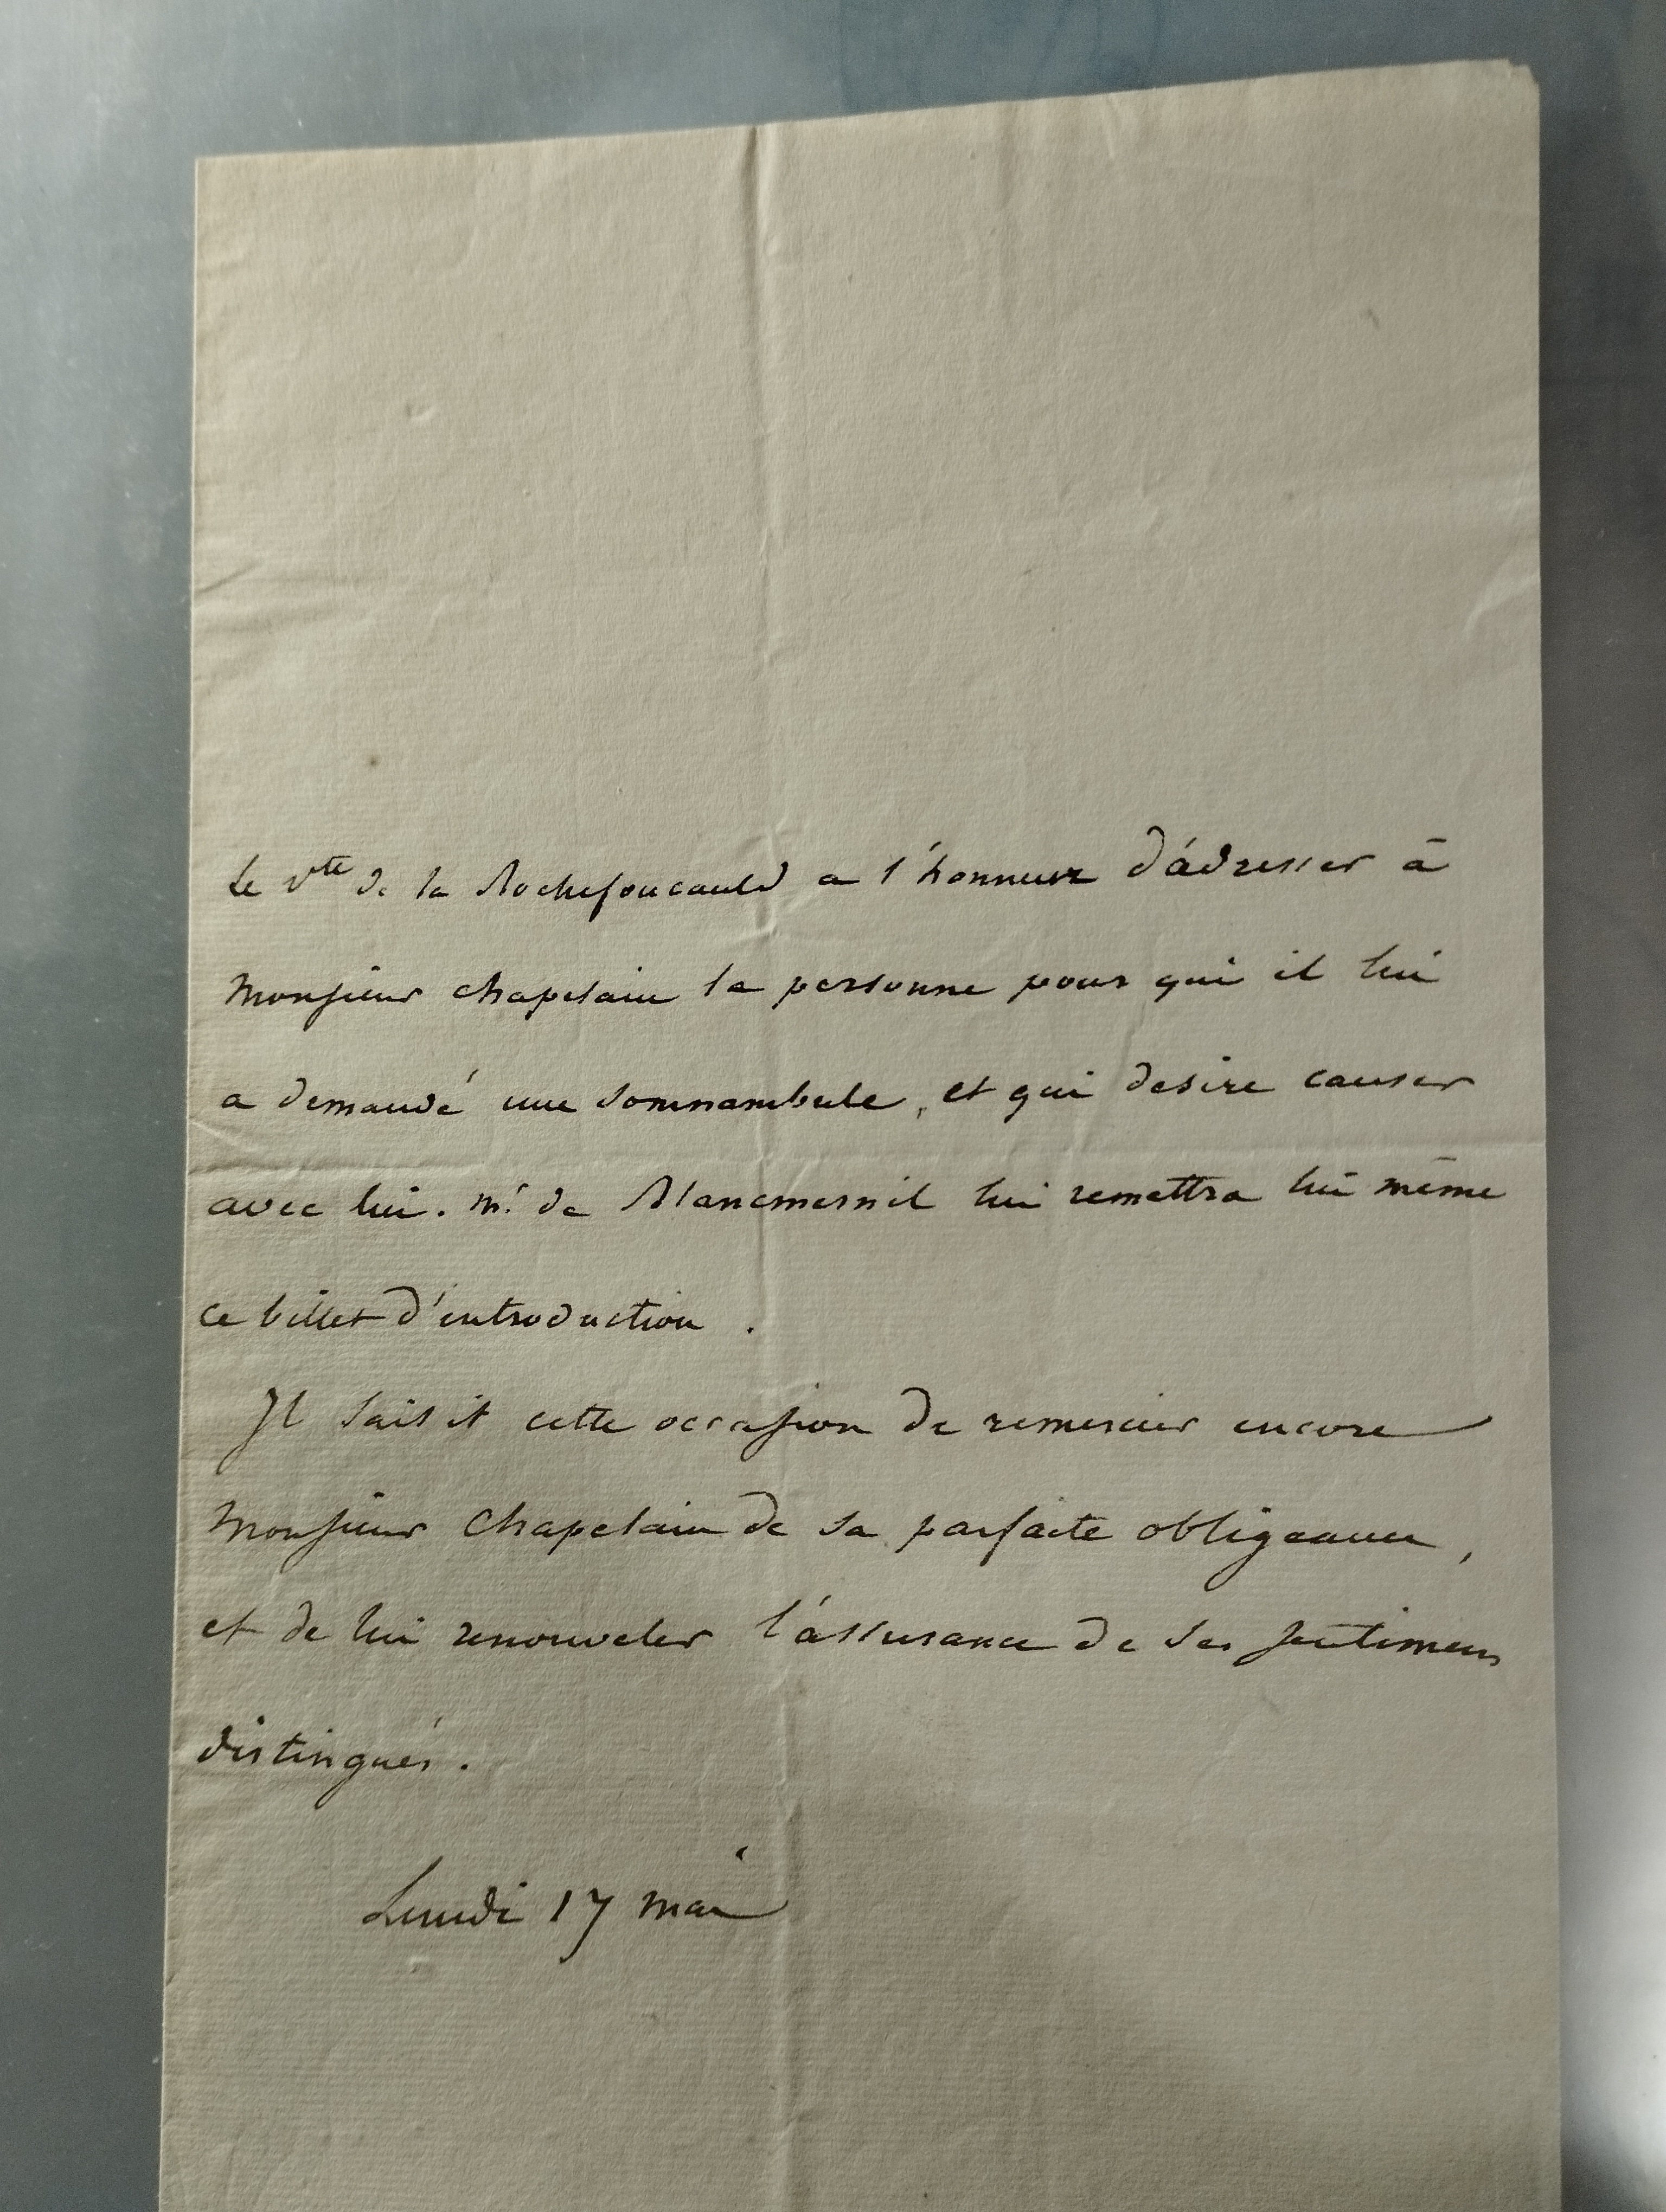 Le Vte de la Rochefoucauld a l'honneur d'adresser à
Monsieur chapelain la personne pour qui il lui
a demandé une somnambule, et qui desire causer
avec lui. Mr de Blancmesnil lui remettra lui même
ce billet d'introduction.
Il saisit cette occasion de remercier encore
Monsieur Chapelain de sa parfaite obligeance,
et de lui renouveler l'assurance de ses sentimens
distingués.
Lundi 17 mai